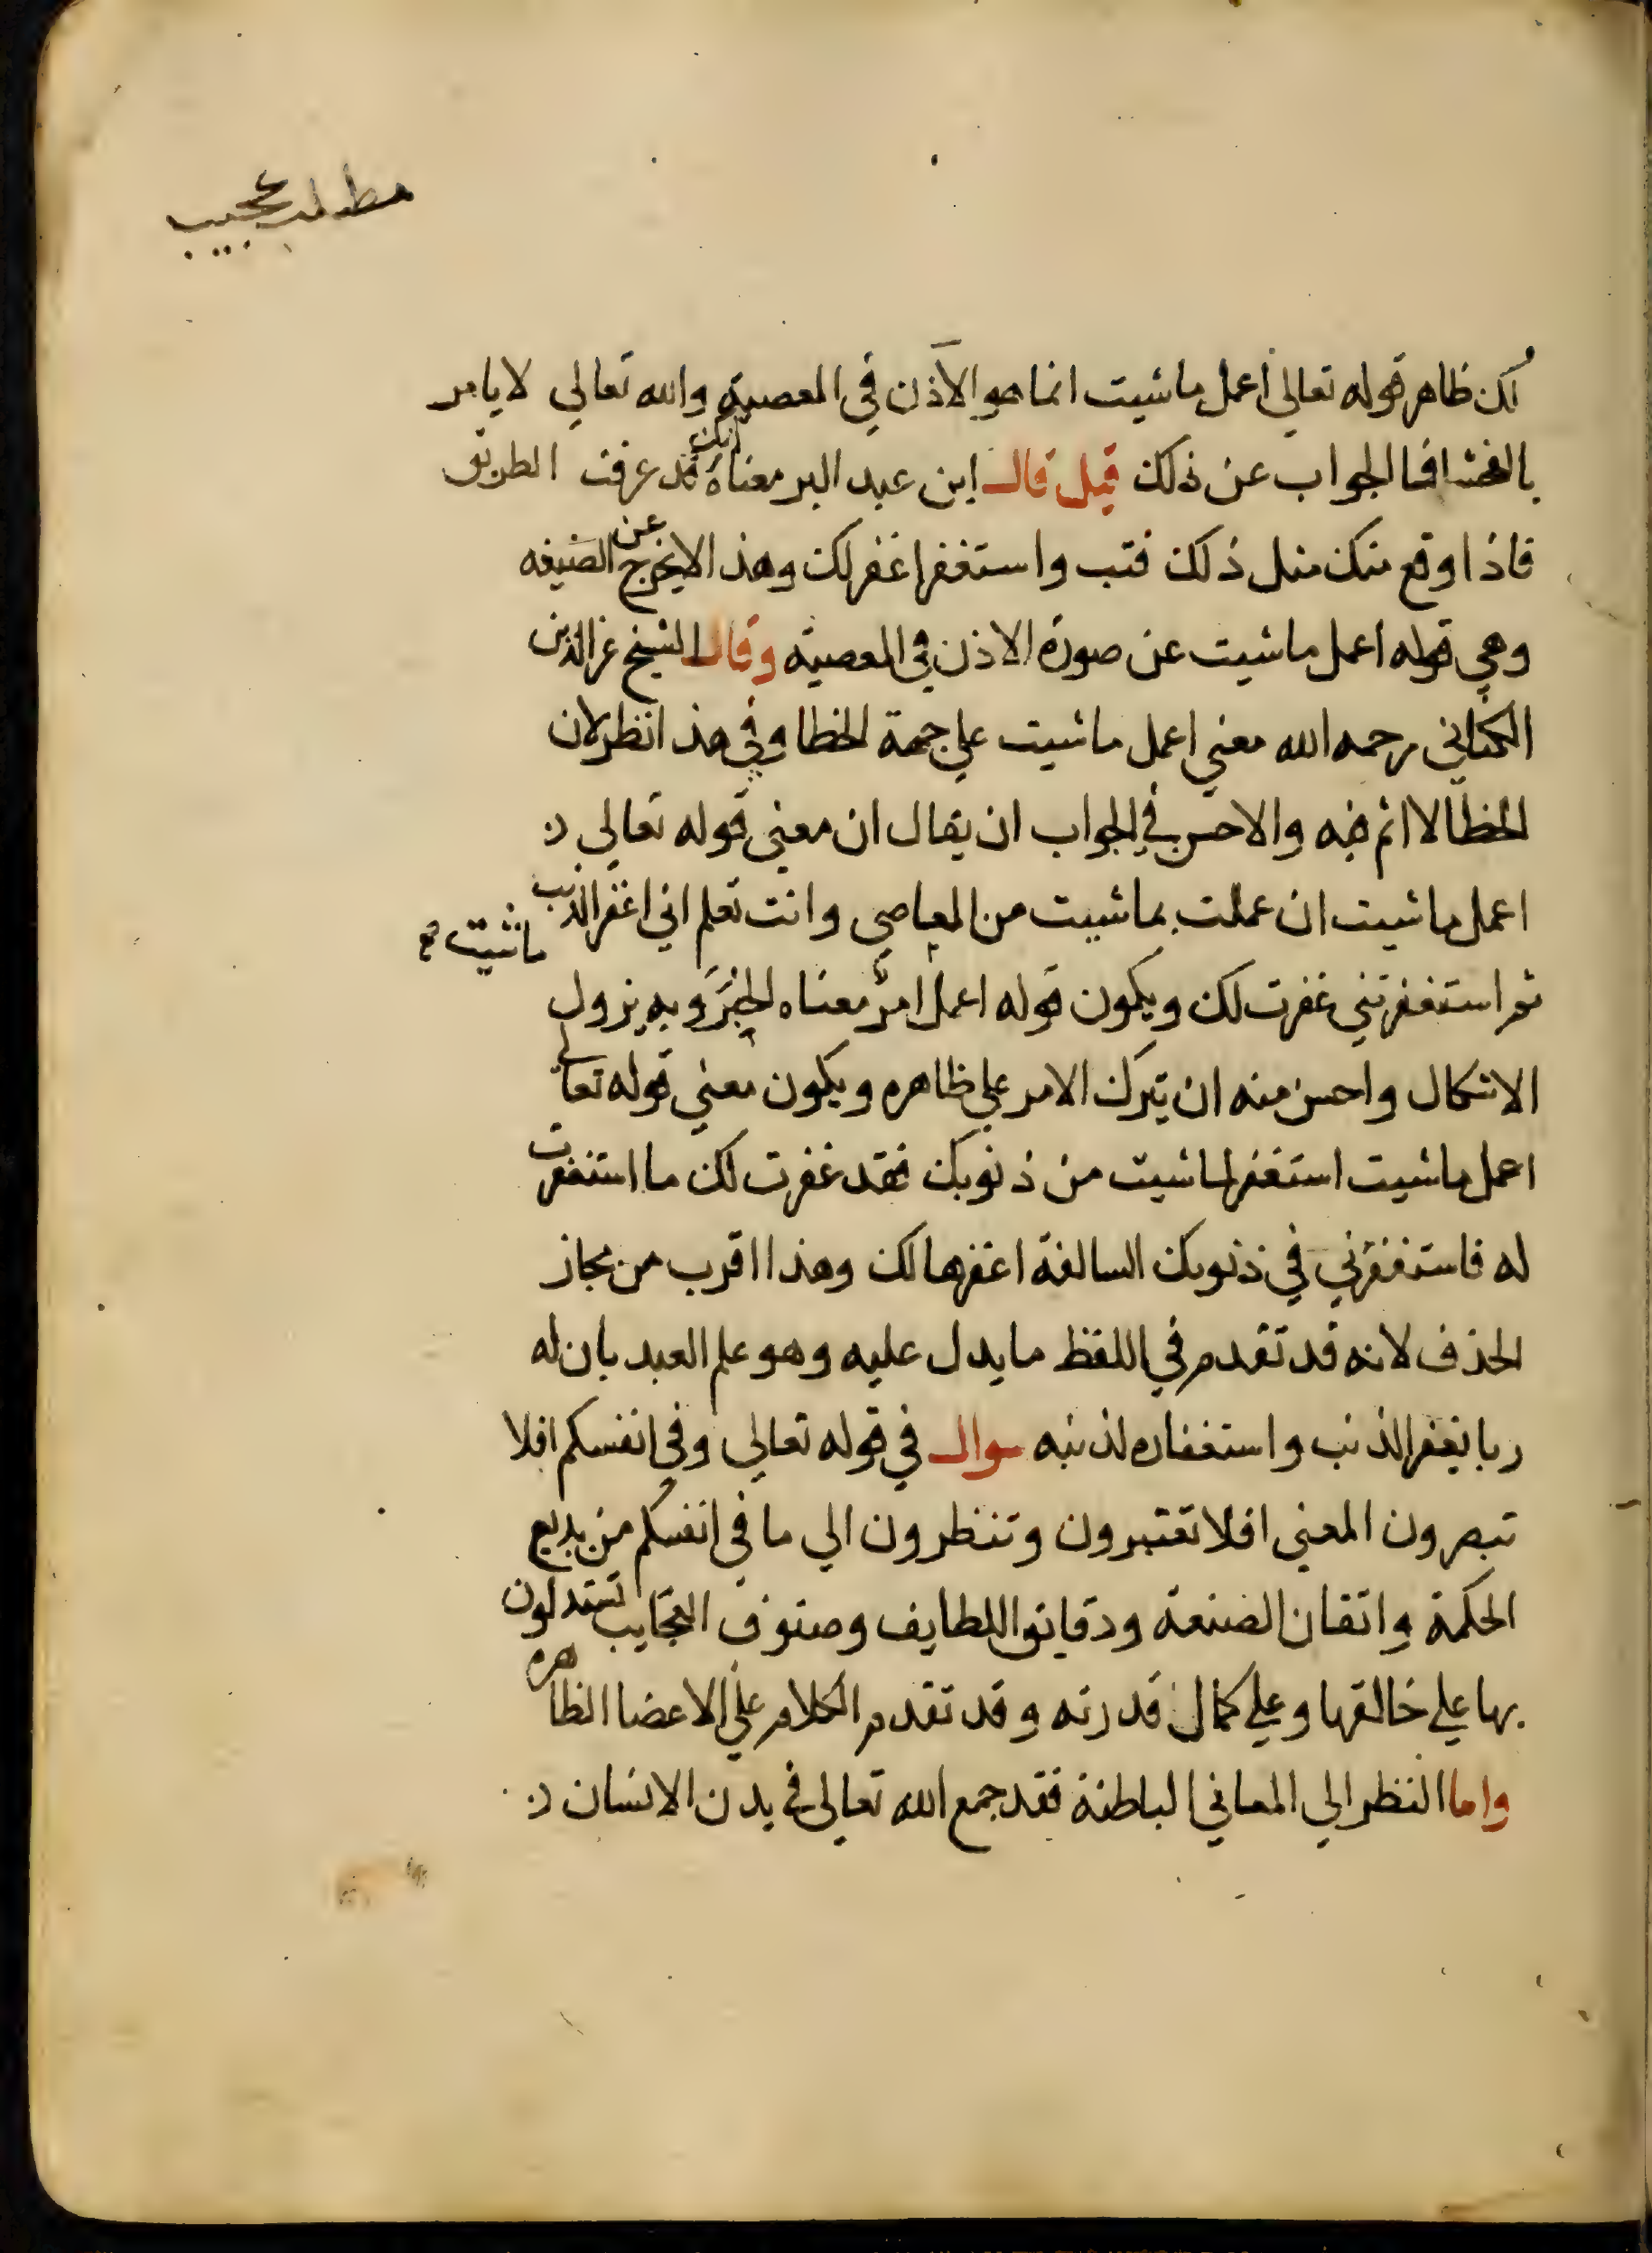 مطلب عجيب
لكن ظاهر قوله تعالى اعمل ماشيت انما هو الاذن في المعصية والله تعالي لا يامر
بالفحشا فما الجواب عن ذلك قيل قال ابن عبد البر معناه انك قد عرفت الطريق
فاذا وقع منك مثل ذلك فتب واستغفر اغفر لك وهذا لا يخرج عن الصيغه
وهي قوله اعمل ماشيت عن صورة الاذن في المعصية وقال الشيخ عز الدين
الكناني رحمه الله معني اعمل ماشيت علي جهة الخطا وفي هذا نظر لان
الخطا لا اثم فيه والاحسن في الجواب ان يقال ان معني قوله تعالي
اعمل ماشيت ان عملت بماشيت من المعاصي وانت تعلم اني اغفر الذنب
ماشيت صح
ثم استغفرتني غفرت لك ويكون قوله اعمل امر معناه الخبر وبه يزول
الاشكال واحسن منه ان يترك الامر علي ظاهره ويكون معني قوله تعالي
اعمل ماشيت استغفر لماشيت من ذنوبك فقد غفرت لك ما استغفرت
له فاستغفرني في ذنوبك السالفة اغفرها لك وهذا اقرب من مجاز
الحذف لانه قد تقدم في اللفظ ما يدل عليه وهو علم العبد بان له
ربا يغفر الذنب واستغفاره لذنبه سوال في قوله تعالي وفي انفسكم افلا
تبصرون المعني افلا تعتبرون وتنظرون الي ما في انفسكم من بديع
الحكمة واتقان الصنعة ودقايق اللطايف وصنوف العجايب تستدلون
بها علي خالقها وعلي كمال قدرته وقد تقدم الكلام علي الاعضا الظاهره
واما النظر الي المعاني الباطنة فقد جمع الله تعالي في بدن الانسان